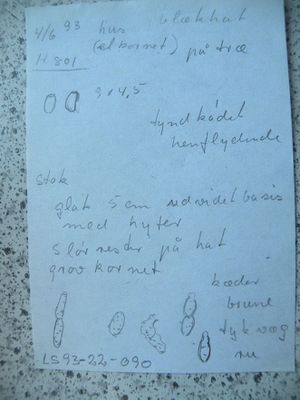 4/6 93 hus blækhat
(el kornet) på træ
H 801
9 x 4,5
tyndkødet
henflydende
stok
glat 5 cm udvidet basis
med hyfer
slørrester på hat
grov kornet
kæder
brune
tyk væg
ru
LS93-22-090